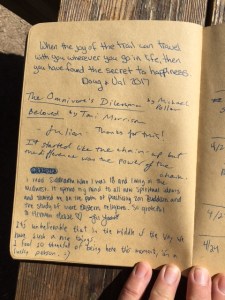 When the joy of the trail can travel
with you wherever you go in life, then
you have found the secret to happiness.
Doug + Val 2017
The Omnivore's Dilemma by Michael
Pollan
Beloved by Toni Morrison
- Julian Thanks for this!
It started like the chain up but
was the power of the
chain.
I read Siddhartha when I was 18 and living in the
Midwest. It opened my mind to all new spiritual ideas
and started me on the path of practicing Zen Buddhism and
the study of most Eastern religions. So grateful
to Hermann Hesse
It's unbelievable that in the middle of the
such a nice thing!
I feel so thankful of being here this moment, I'm a
lucky person :)
4/2
4/24